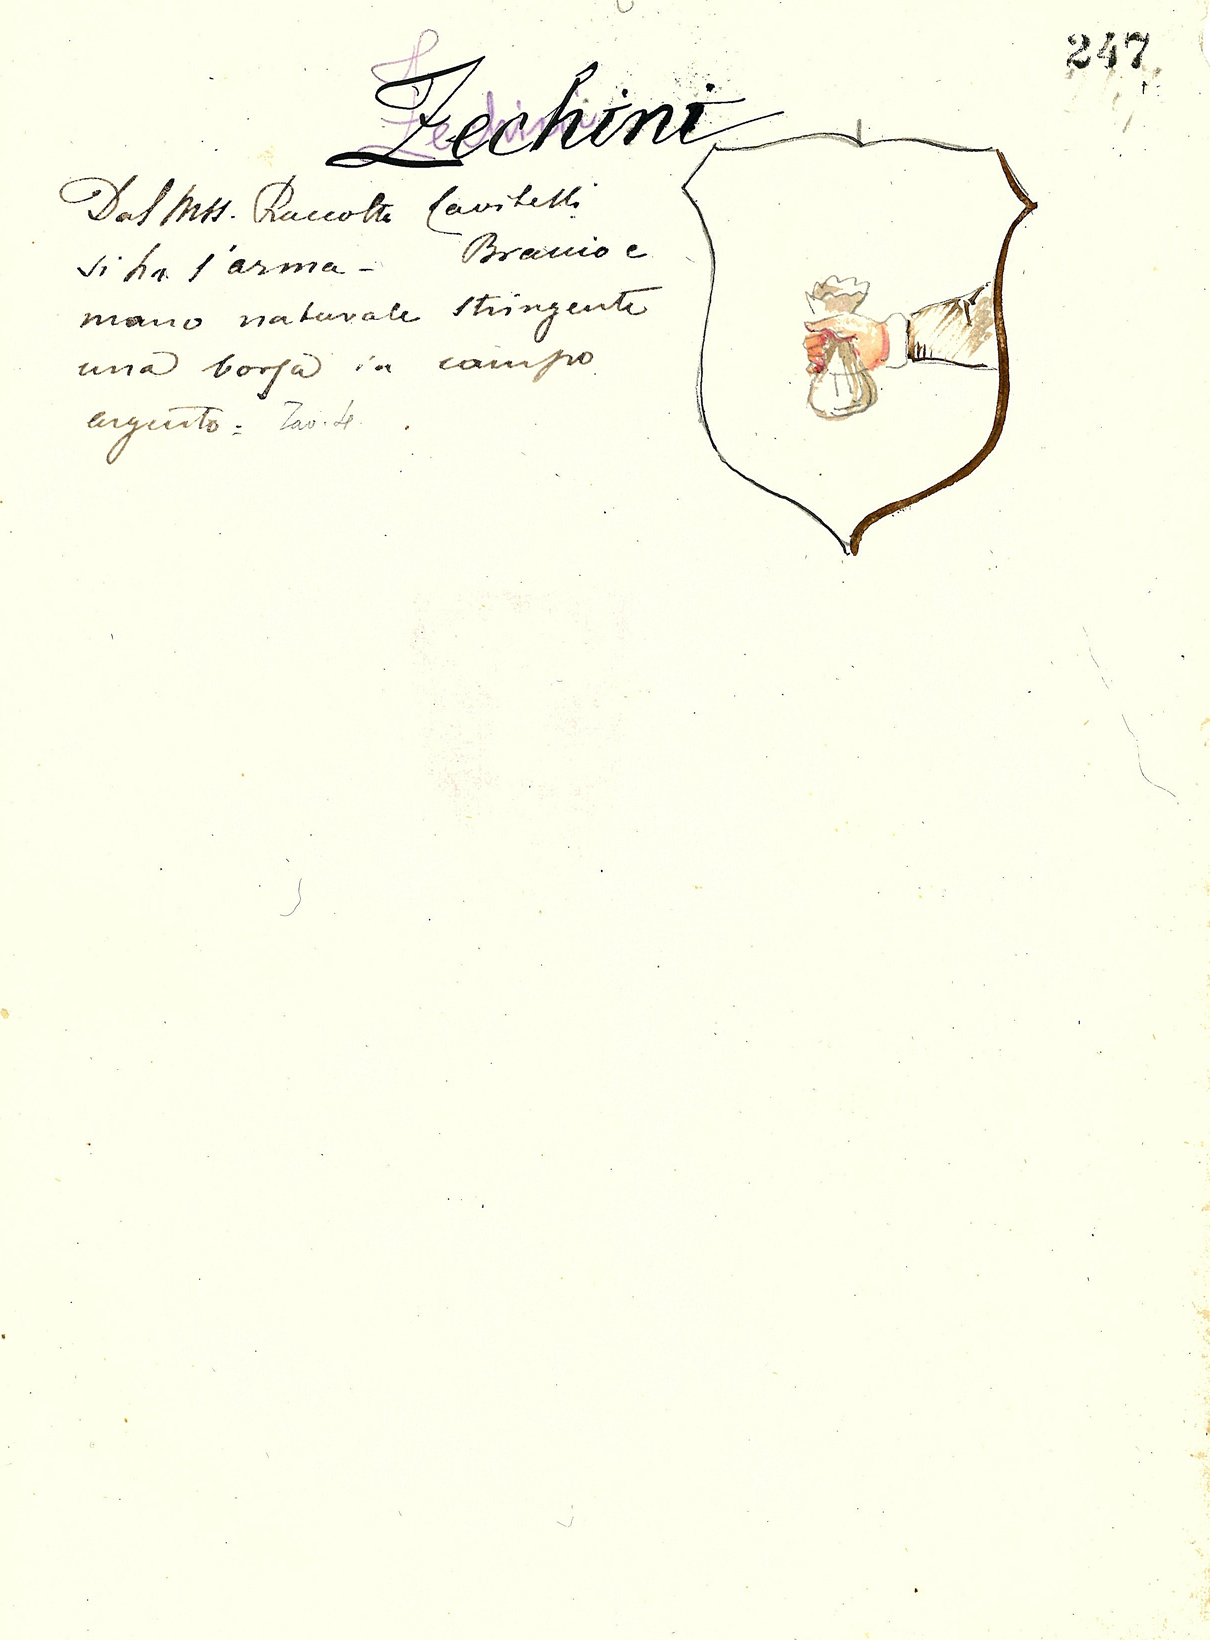 247
Zechini
Dal Mss. Raccolta Cavitelli
si ha l'arma - Braccio e
mano naturale stringente
una borsa in campo
argento = Tav. 4.